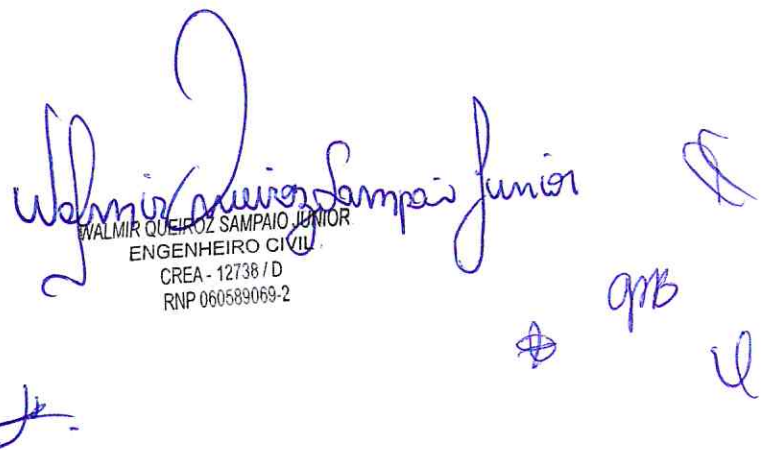 Walmir Queiroz Sampaio Junior
WALMIR QUEIROZ SAMPAIO JUNIOR
ENGENHEIRO CIVIL
CREA - 12738 / D
RNP 060589069-2